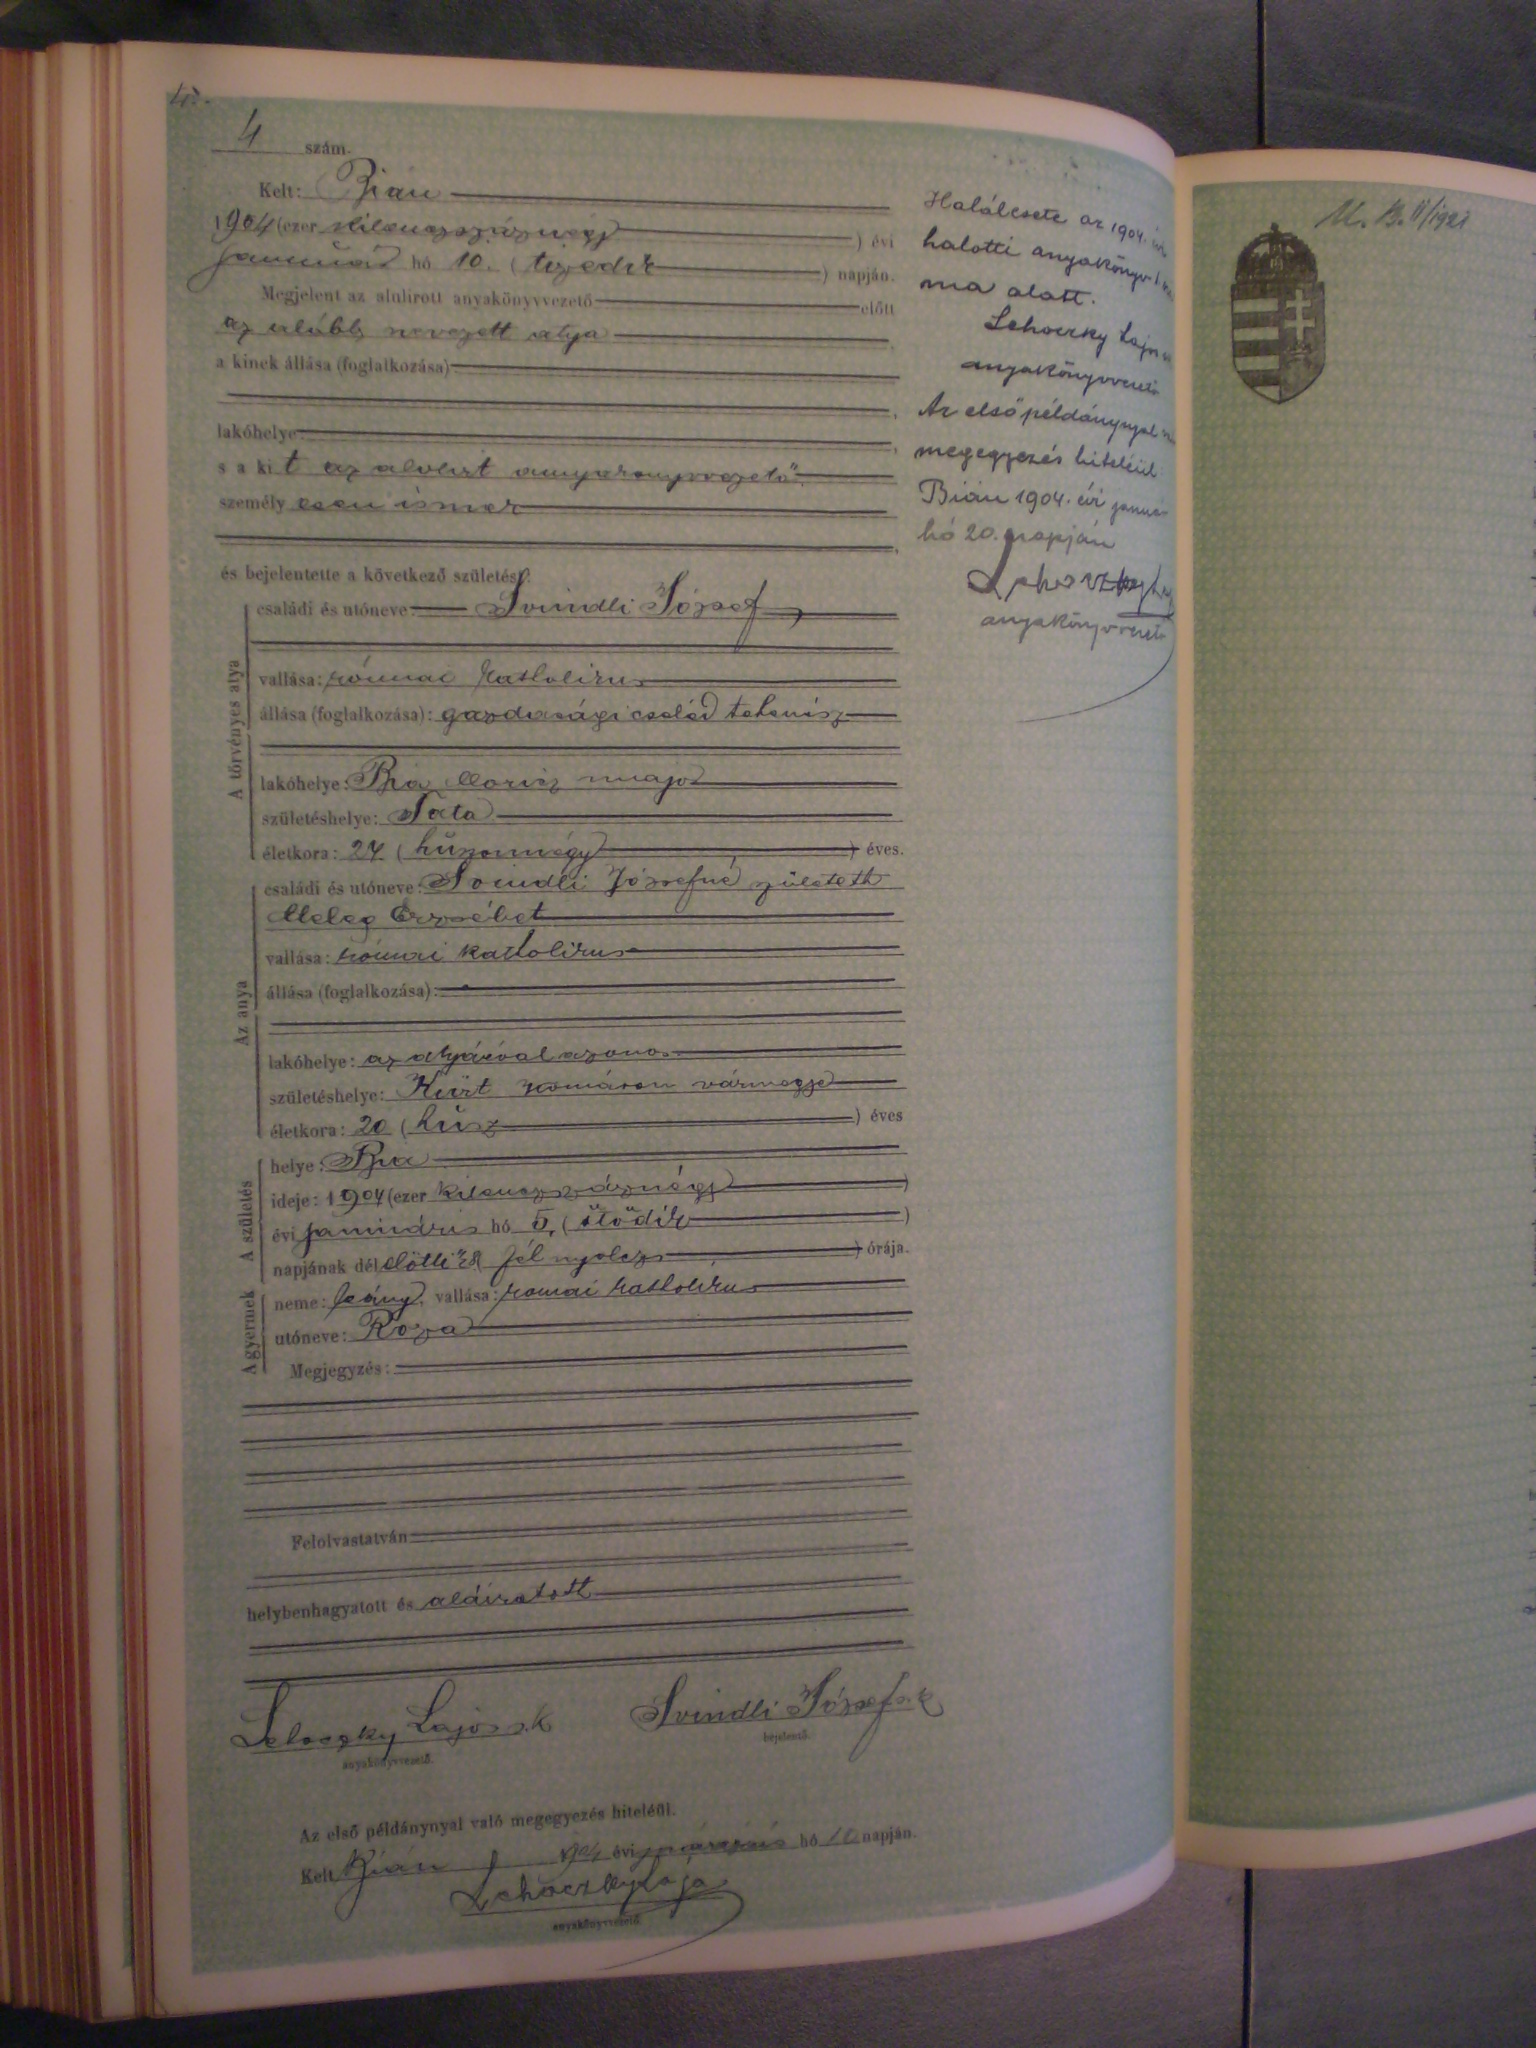 4 szám.
Kelt: Bián
1904 (ezer kilenczszáznégy) évi
január hó 10. (tizedik) napján.
Megjelent az alulirott anyakönyvvezető előtt
az alább nevezett atya
a kinek állása (foglalkozása)
lakóhelye
s a kit az alolirt anyakönyvvezető
személyesen ismer
és bejelentette a következő születést:
A törvényes atya
családi és utóneve: Svindli József
vallása: római katholikus
állása (foglalkozása): gazdasági cseléd tehenész
lakóhelye: Bia major
születéshelye: Tata
életkora: 24 (húszonnégy) éves.
Az anya
családi és utóneve: Svindli Józsefné születeth
Meleg Erzsébet
vallása: római katholikus
állása (foglalkozása):
lakóhelye: az atyáéval azonos
születéshelye: Kürt Komárom vármegye
életkora: 20 (húsz) éves
A születés
helye: Bia
ideje: 1904 (ezer kilenczszáznégy)
évi január hó 5. (ötödik)
napjának délelőtti fél nyolcz) órája.
A gyermek
neme: leány, vallása: romai katholikus
utóneve: Roza
Megjegyzés:
Felolvastatván
helybenhagyatott és aláiratott
Lehoczky Lajos s.k
anyakönyvvezető.
Svindli József s. k
bejelentő.
Az első példánynyal való megegyezés hiteléül.
Kelt Bián 1904 évi hó 10 napján.
Lehoczky Lajos
anyakönyvvezető
Halálesete az 1904. évi
halotti anyakönyv 1
ma alatt.
Lehoczky Lajos
anyakönyvvezető
Az első példánynyal
megegyezés hiteléül
Bián 1904. évi január
hó 20. napján
Lehoczky
anyakönyvvezető
M. B. II/1921